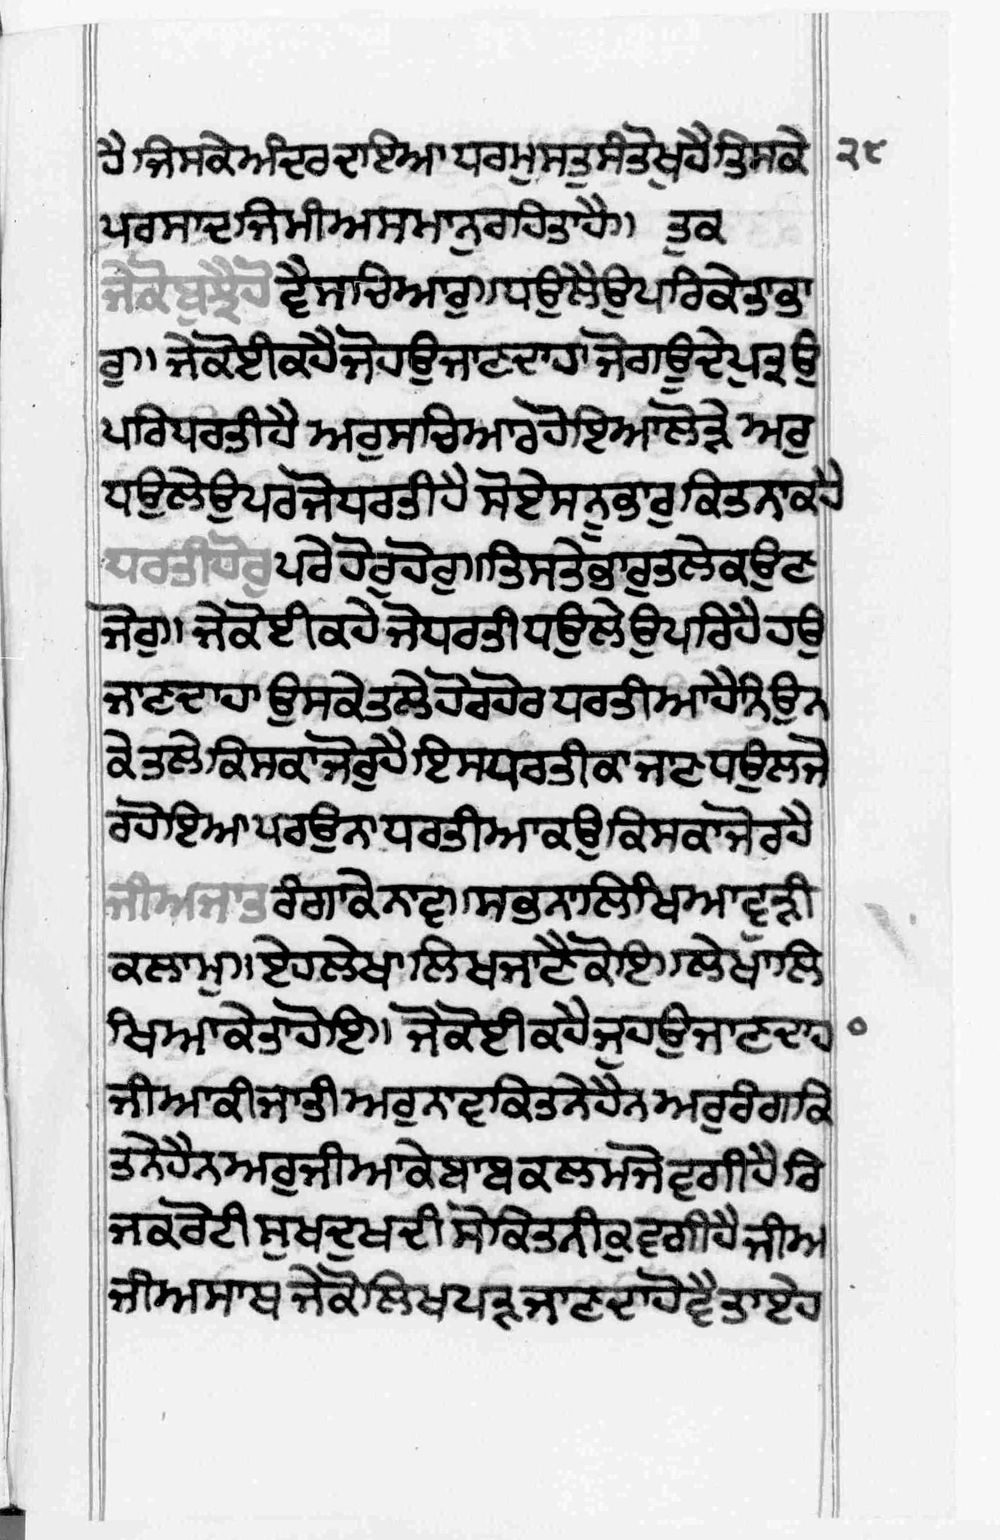 ਹੈ ਜਿਸਕੇ ਅੰਦਰ ਦਾਇਆ ਧਰਮੁ ਸਤੁ ਸੰਤੋਖੁ ਹੈ ਤਿਸਕੇ ੨੮
ਪਰਸਾਦ ਜਿਮੀ ਅਸਮਾਨੁ ਰਹਿਤਾ ਹੈ॥ ਤੁਕ
ਜੇਕੋ ਬੁਝੈ ਹੋਵੈ ਸਚਿਆਰੁ॥ ਧਉਲੈ ਉਪਰਿ ਕੇਤਾ ਭਾ
ਰੁ॥ ਜੇ ਕੋਈ ਕਹੈ ਜੋ ਹਉ ਜਾਣਦਾ ਹਾ ਜੋ ਗਉ ਦੇ ਪੁੜ ਉ
ਪਰਿ ਧਰਤੀ ਹੈ ਅਰੁ ਸਚਿਆਰ ਹੋਇਆ ਲੋੜੇ ਅਰੁ
ਧਉਲੇ ਉਪਰ ਜੋ ਧਰਤੀ ਹੈ ਸੋ ਏਸਨੂ ਭਾਰੁ ਕਿਤਨਾਕ ਹੈ
ਧਰਤੀ ਹੋਰੁ ਪਰੇ ਹੋਰੁ ਹੋਰੁ॥ ਤਿਸਤੇ ਭਾਰੁ ਤਲੇ ਕਉਣ
ਜੋਰੁ॥ ਜੇ ਕੋਈ ਕਹੇ ਜੋ ਧਰਤੀ ਧਉਲੇ ਉਪਰਿ ਹੈ ਹਉ
ਜਾਣਦਾ ਹਾ ਉਸਕੇ ਤਲੇ ਹੋਰ ਹੋਰ ਧਰਤੀਆ ਹੈਨਿ ਉਨ
ਕੇ ਤਲੇ ਕਿਸਕਾ ਜੋਰੁ ਹੈ ਇਸ ਧਰਤੀ ਕਾ ਜਾਣ ਧਉਲ ਜੋ
ਰ ਹੋਇਆ ਪਰ ਉਨਾ ਧਰਤੀਆ ਕਉ ਕਿਸਕਾ ਜੋਰ ਹੈ
ਜੀਅ ਜਾਤਿ ਰੰਗਾ ਕੇ ਨਾਵ॥ ਸਭਨਾ ਲਿਖਿਆ ਵੁੜੀ
ਕਲਾਮੁ॥ ਏਹ ਲੇਖਾ ਲਿਖ ਜਾਣੈ ਕੋਇ॥ ਲੇਖਾ ਲਿ
ਖਿਆ ਕੇਤਾ ਹੋਇ॥ ਜੇ ਕੋਈ ਕਹੈ ਜੁ ਹਉ ਜਾਣਦਾ ਹ
ਜੀਆ ਕੀ ਜਾਤੀ ਅਰੁ ਨਾਵ ਕਿਤਨੇ ਹੈਨ ਅਰੁ ਰੰਗ ਕਿ
ਤਨੇ ਹੈਨ ਅਰੁ ਜੀਆ ਕੇ ਬਾਬ ਕਲਮ ਜੋ ਵਗੀ ਹੈ ਰਿ
ਜਕ ਰੋਟੀ ਸੁਖ ਦੁਖ ਦੀ ਸੋ ਕਿਤਨੀਕੁ ਵਗੀ ਹੈ ਜੀਅ
ਜੀਅ ਸਾਥ ਜੇ ਕੋ ਲਿਖ ਪੜ ਜਾਣਦਾ ਹੋਵੈ ਤਾ ਏਹ